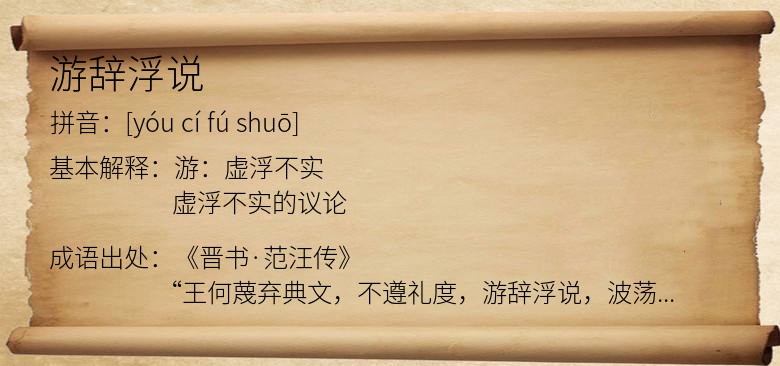 游辞浮说
拼音：[yóu cí fú shuō]
基本解释：游：虚浮不实
虚浮不实的议论
成语出处：《晋书·范汪传》
“王何蔑弃典文，不遵礼度，游辞浮说，波荡...